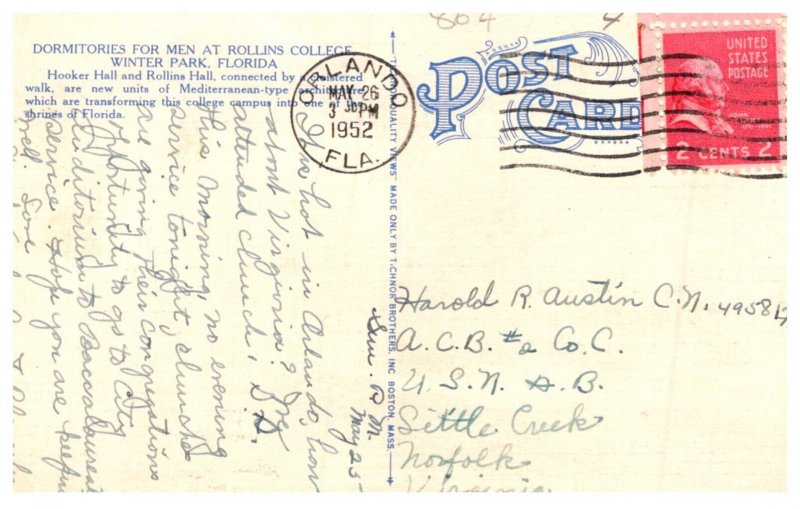 864 4
DORMITORIES FOR MEN AT ROLLINS COLLEGE
WINTER PARK, FLORIDA
Hooker Hall and Rollins Hall, connected by a cloistered
walk, are new units of Mediterranean-type architecture
which are transforming this college campus into one of the
shrines of Florida.
ORLANDO
MAY 26
3 30 PM
1952
FLA.
POST
CARD
UNITED
STATES
POSTAGE
JOHN
2 CENTS 2
QUALITY VIEWS" MADE ONLY BY TICHNOR BROTHERS, INC. BOSTON, MASS.
Sun. P.M.
May 25
hot in Orlando, how
about Virginia? Grey
attended church, S.S.
this morning, no evening
service tonight, churches
are giving their congregations
opportunity to go to City
Auditorium to Baccalaureate
service. Hope you are keeping
well. Love
Harold R. Austin C.N. 495817
A.C.B. #2 Co. C.
U.S.N. A.B.
Little Creek
Norfolk
Virginia